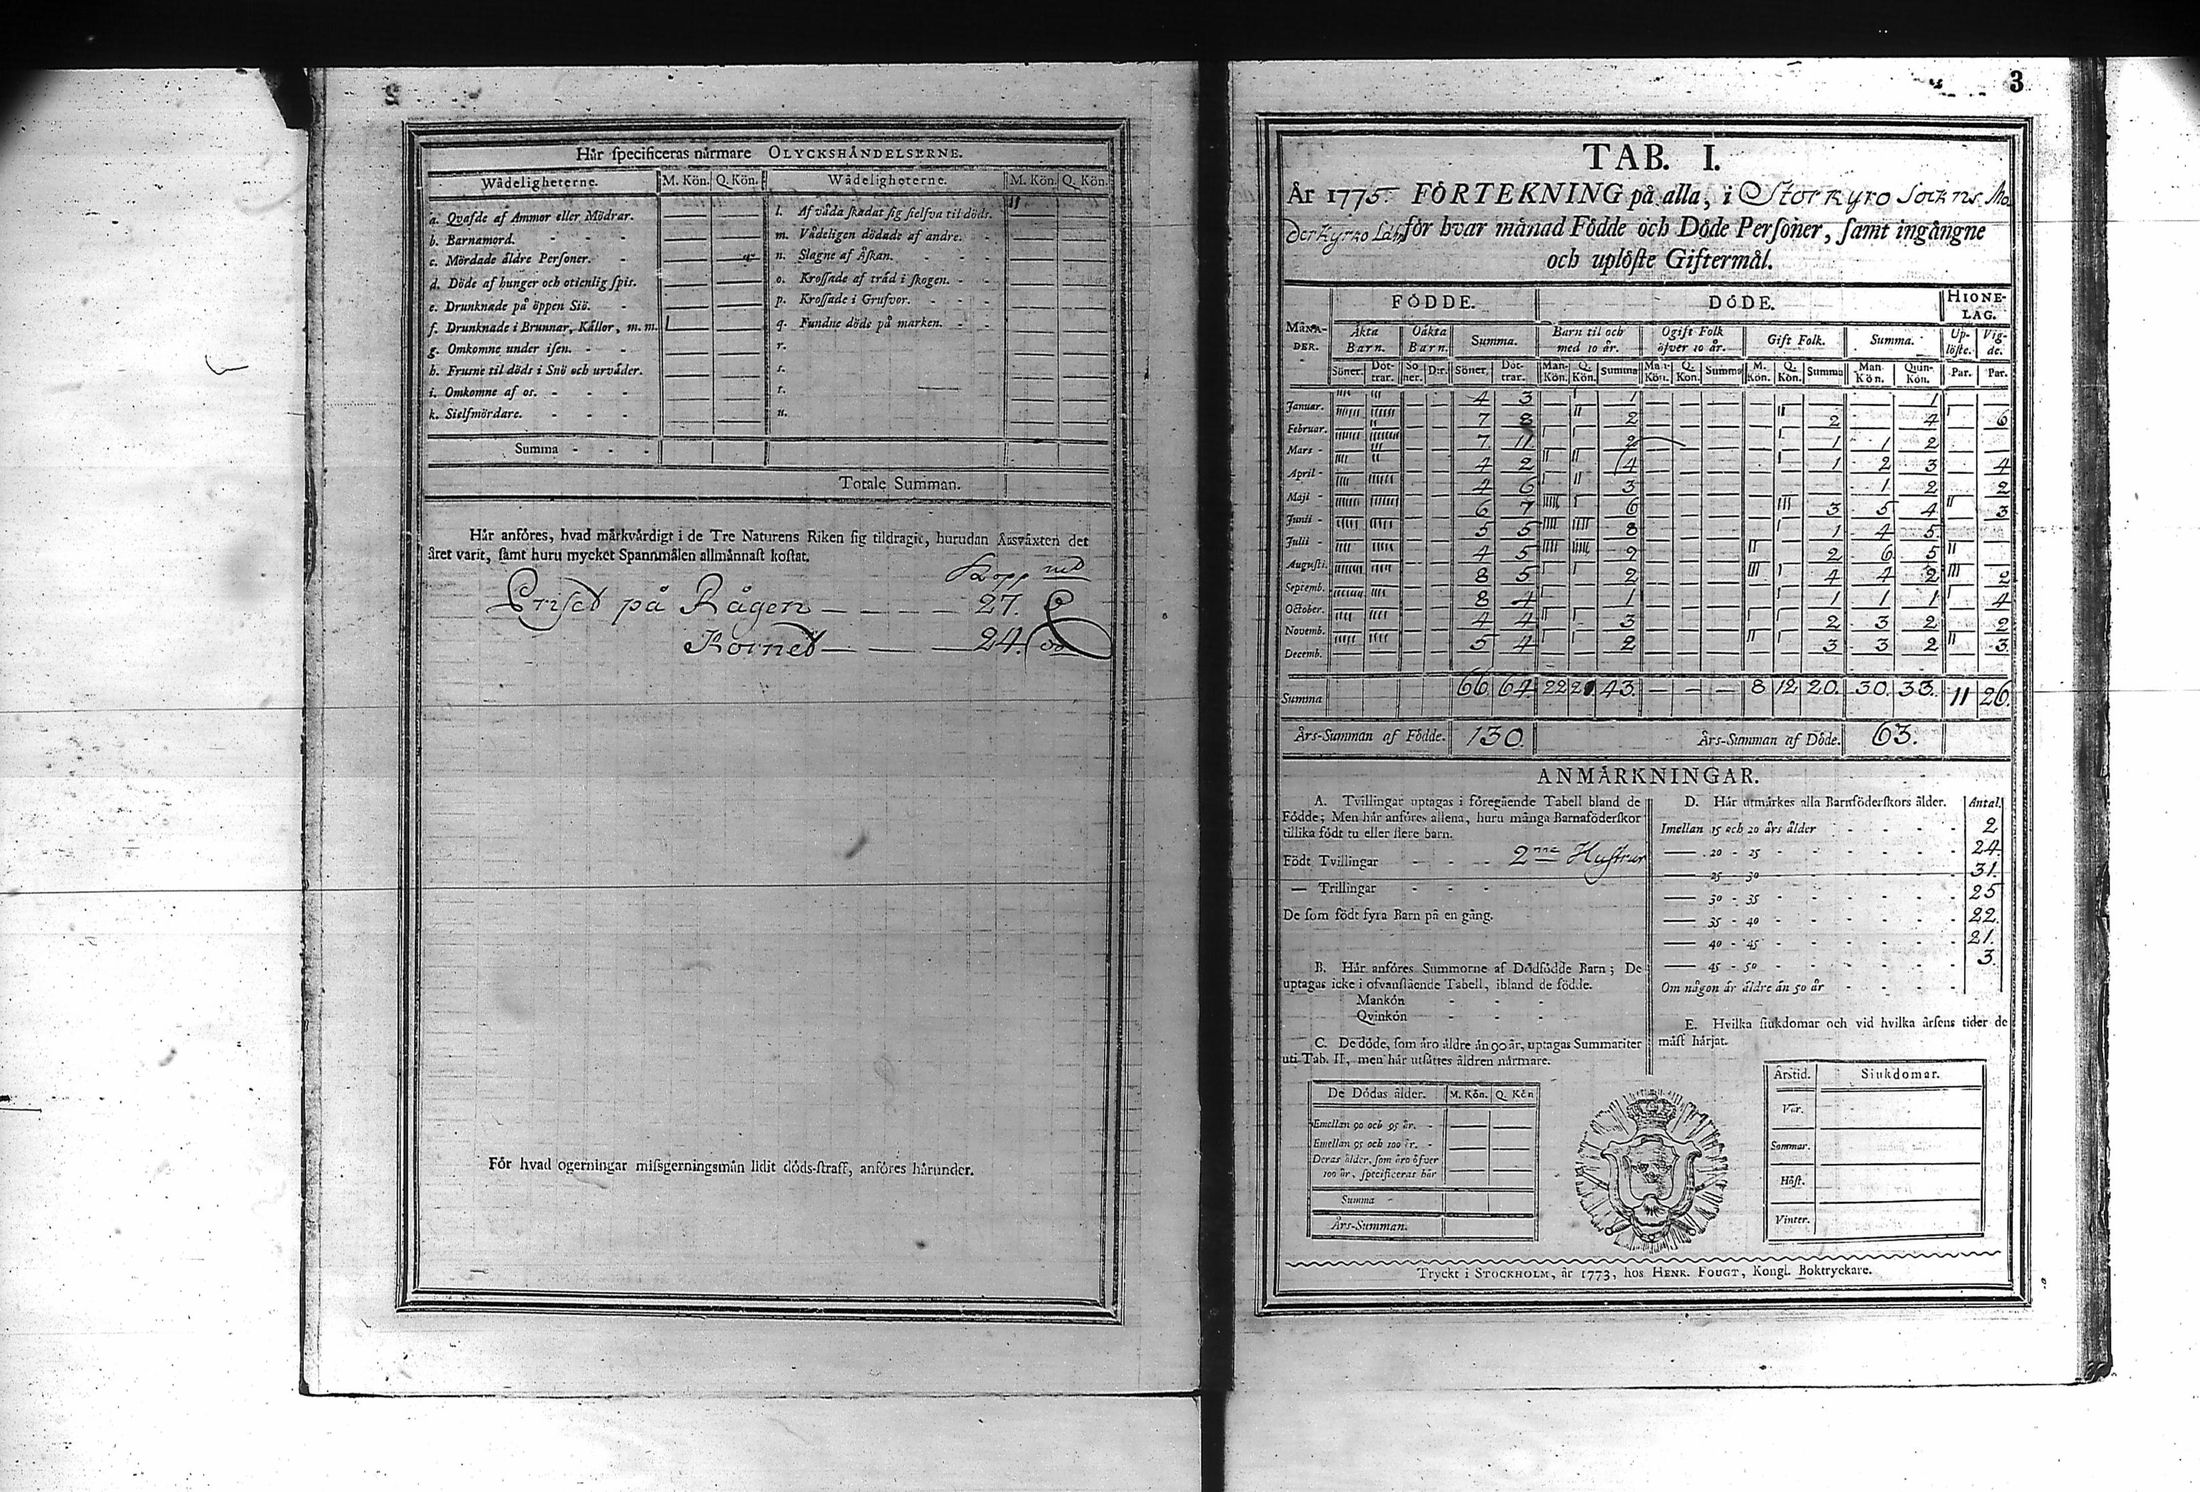 Hår specificeras nårmare OLYCKSHÅNDELSERNE.
Wådeligheterne. M. Kön. Q. Kön. Wådeligheterne. M. Kön. Q. Kön.
a. Qvafde af Ammor eller Mödrar.
b. Barnamord.
c. Mördade åldre Personer.
d. Döde af hunger och otienlig spis.
e. Drunknade på öppen Siö.
f. Drunknade i Brunnar, Kållor, m. m. 1
g. Omkomne under isen.
h. Frusne til döds i Snö och urvåder.
i. Omkomne af os.
k. Sielfmördare.
l. Af våda skadat sig sielfva til döds. 11
m. Vådeligen dödade af andre.
n. Slagne af Åskan.
o. Krossade af tråd i skogen.
p. Krossade i Grufvor.
q. Fundne döde på marken.
r.
s.
t.
u.
Summa
Totale Summan.
Hår anföres, hvad mårkvårdigt i de Tre Naturens Riken sig tildragit, hurudan Årsvåxten det
året varit, samt huru mycket Spannmålen allmånnast kostat.
Priset på Rågen 27.
Kornet 24.
För hvad ogerningar missgerningsmån lidit döds-straff, anföres hårunder.
3
TAB. I.
År 1775 FÖRTEKNING på alla, i Storkyro Sockns Mo
derkyrko för hvar månad Födde och Döde Personer, samt ingångne
och uplöste Giftermål.
FÖDDE. DÖDE. HIONE-LAG.
MÅNA-DER. Åkta Barn. Oåkta Barn. Summa. Barn til och med 10 år. Ogift Folk öfver 10 år. Gift Folk. Summa. Up-löste. Vig-de.
Söner. Döt-trar. Sö-ner. D:r. Söner. Döt-trar. Man-Kön. Q. Kön. Summa Man-Kön. Q. Kön. Summa M. Kön. Q. Kön. Summa Man-Kön. Quin-Kön. Par. Par.
Januar. 4 3 1 1
Februar. 7 8 2 2 4 6
Mars 7 11 2 1 1 2
April 4 2 4 1 2 3 4
Maji 4 6 3 1 2 2
Junii 6 7 6 3 5 4 3
Julii 5 5 8 1 4 5
Augusti. 4 5 2 2 6 5
Septemb. 8 5 2 4 4 2 2
October. 8 4 1 1 1 1 4
Novemb. 4 4 3 2 3 2 2
Decemb. 5 4 2 3 3 2 3
Summa 66 64 22 43. 8 12 20. 30. 33. 11 26.
Års-Summan af Födde. 130. Års-Summan af Döde. 63.
ANMÅRKNINGAR.
A. Tvillingar uptagas i föregående Tabell bland de
Födde; Men hår anföres allena, huru många Barnaföderskor
tillika födt tu eller flere barn.
Födt Tvillingar 2ne Hustrur
Trillingar
De som födt fyra Barn på en gång.
B. Hår anföres Summorne af Dödfödde Barn; De
uptagas icke i ofvanstående Tabell, ibland de födde.
Mankön
Qvinkön
C. De döde, som åro åldre ån 90 år, uptagas Summariter
uti Tab. II, men hår utsåttes åldren nårmare.
De Dödas ålder. M. Kön. Q. Kön
Emellan 90 och 95 år.
Emellan 95 och 100 år.
Deras ålder, som åro öfver
100 år, specificeras hår
Summa
Års-Summan.
D. Hår utmårkes alla Barnföderskors ålder. Antal.
Imellan 15 och 20 års ålder 2
20 - 25 24.
25 - 30 31.
30 - 35 25
35 - 40 22.
40 - 45 21.
45 - 50 3.
Om någon år åldre ån 50 år
E. Hvilka siukdomar och vid hvilka årsens tider de
måst hårjat.
Årstid. Siukdomar.
Vår.
Sommar.
Höst.
Vinter.
Tryckt i STOCKHOLM, år 1773, hos HENR. FOUGT, Kongl. Boktryckare.